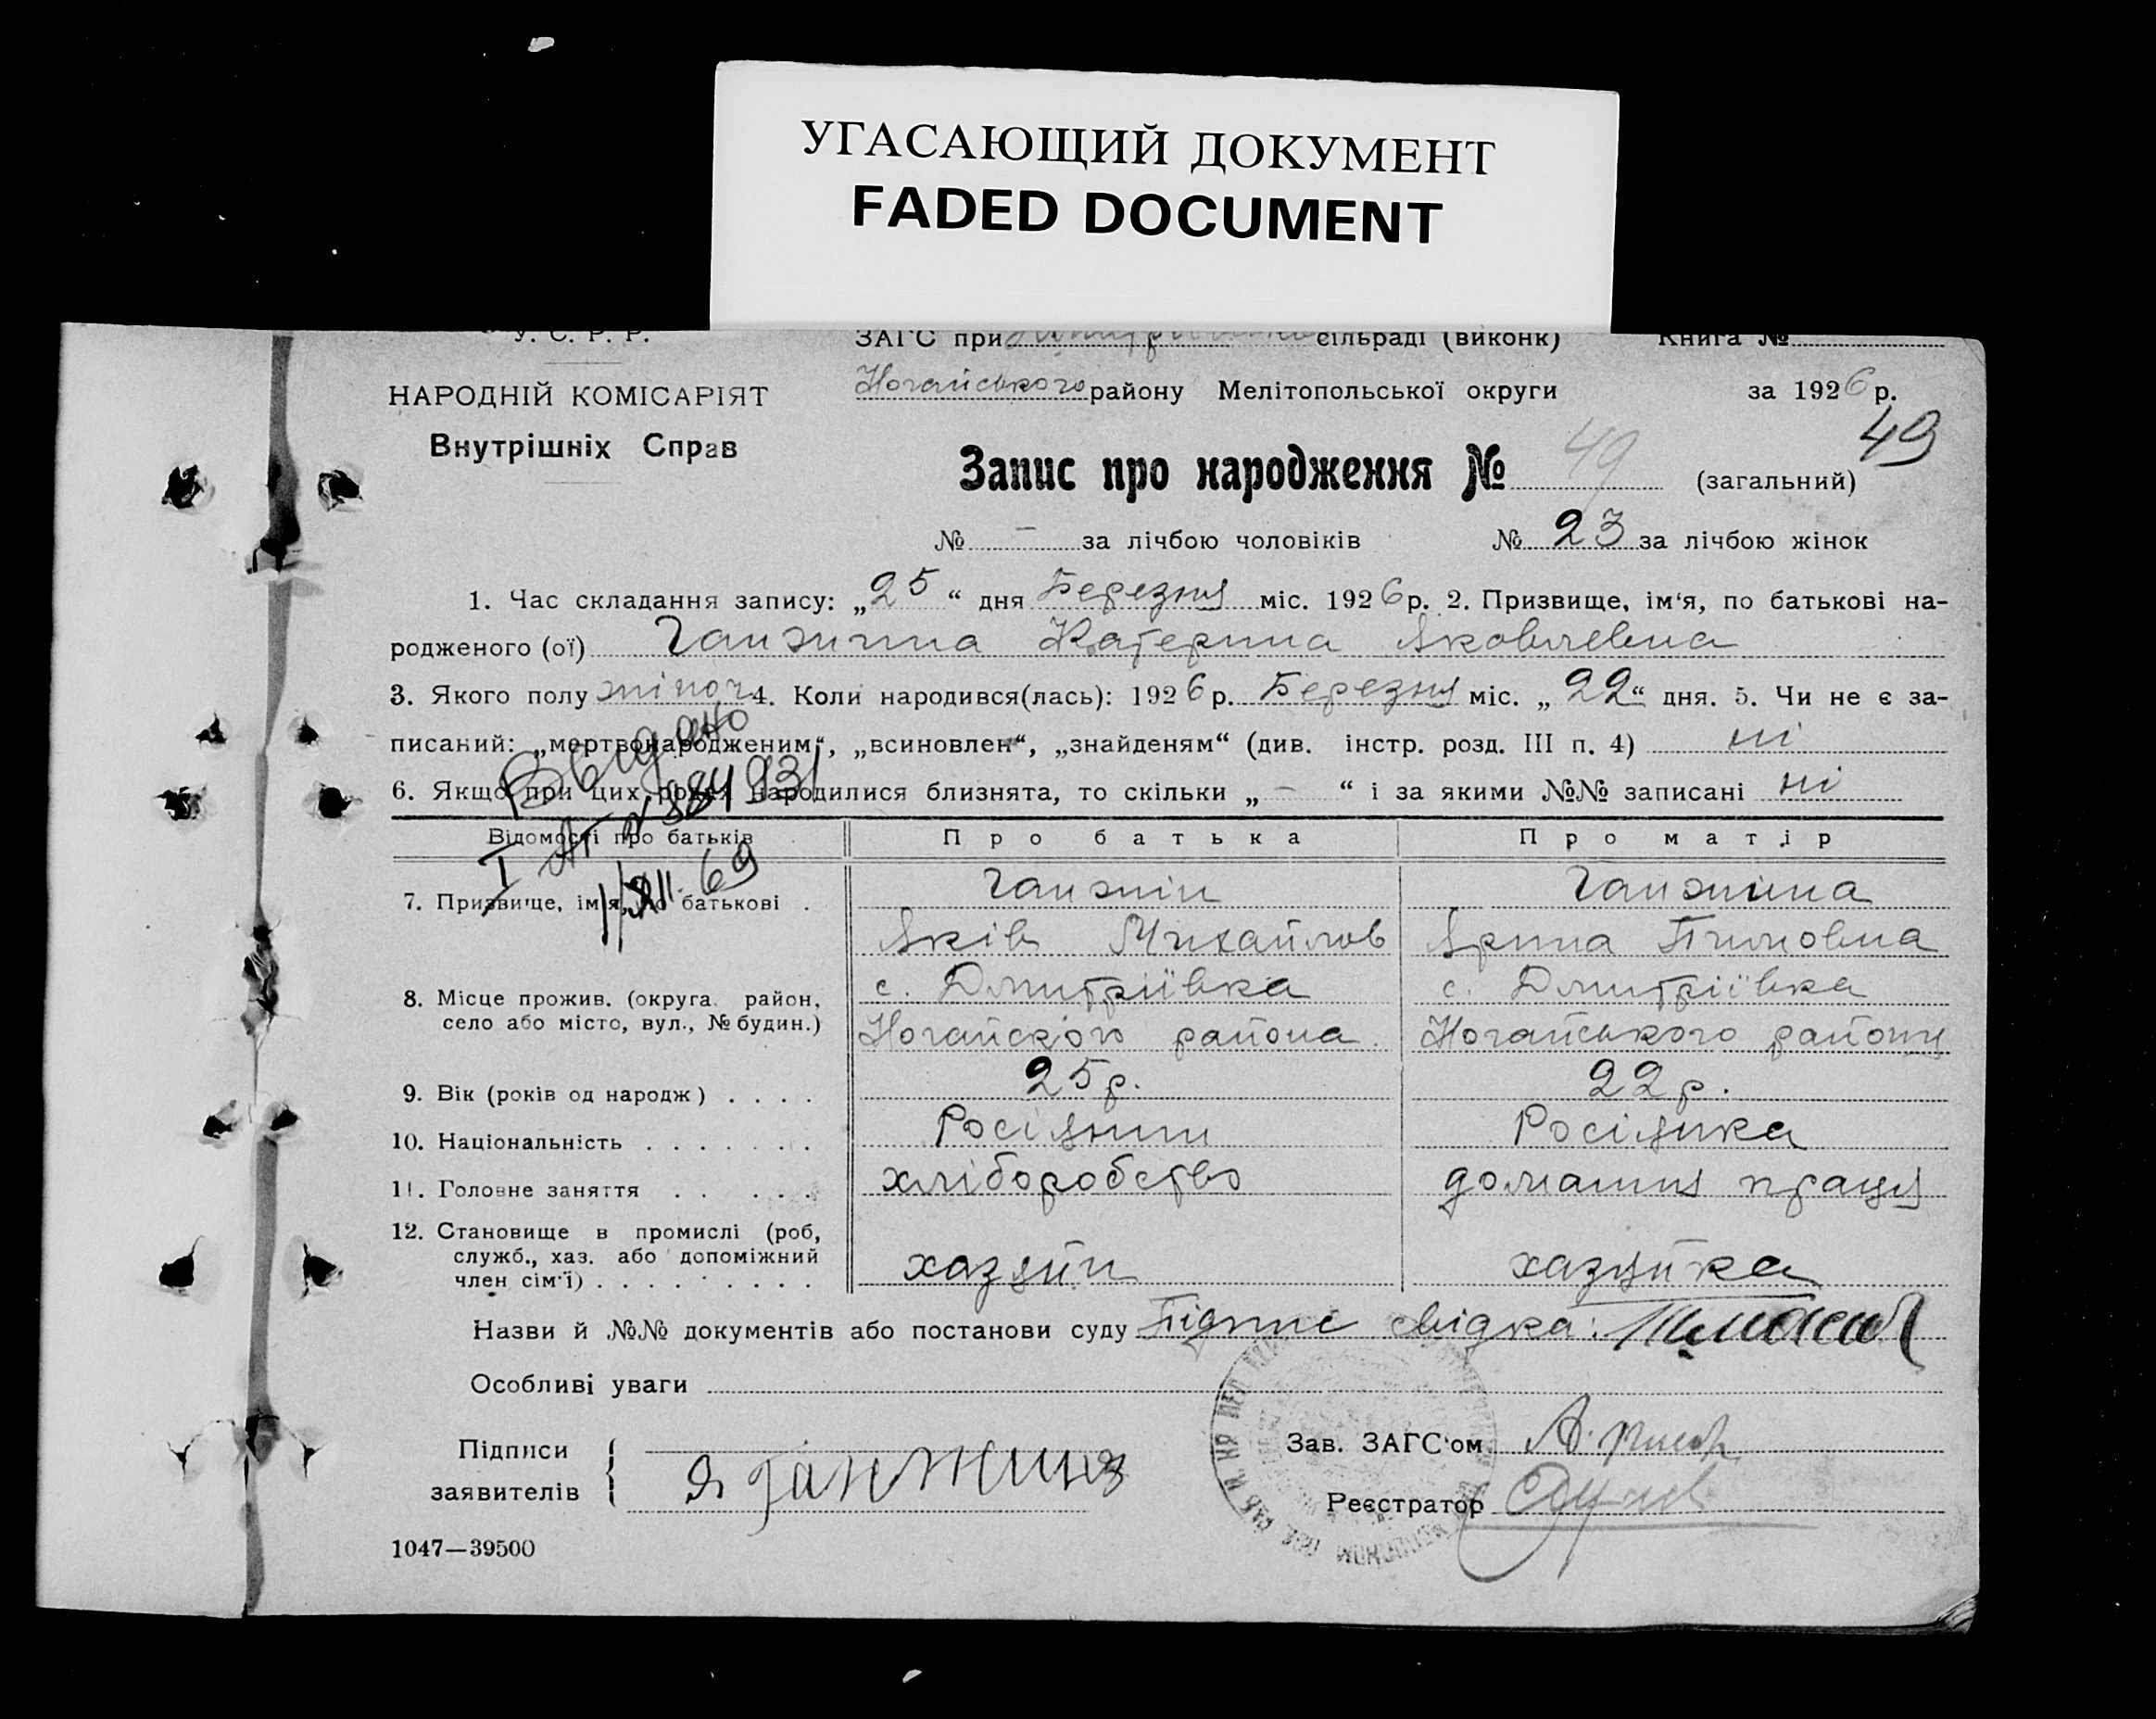 УГАСАЮЩИЙ ДОКУМЕНТ
FADED DOCUMENT
У. С. Р. Р. ЗАГС при сільраді (виконк) Книга №
НАРОДНІЙ КОМІСАРІЯТ Ногайського району Мелітопольської округи за 1926 р.
Внутрішніх Справ 49
Запис про народження № 49 (загальний)
№ – за лічбою чоловіків № 23 за лічбою жінок
1. Час складання запису: „25“ дня Березня міс. 1926 р. 2. Призвище, ім‘я, по батькові на-
родженого (ої) Ганжина Катерина Яковлевна
3. Якого полу жіноч 4. Коли народився(лась): 1926 р. Березня міс. „22“ дня. 5. Чи не є за-
писаний: „мертвонародженим“, „всиновлен“, „знайденям“ (див. інстр. розд. III п. 4) ні
6. Якщо при цих родах народилися близнята, то скільки „ – “ і за якими №№ записані ні
Выдано
I АГ № 884931
11/XII-69
Відомості про батьків Про батька Про матір
7. Призвище, ім‘я, по батькові . Ганжін Ганжіна
Яків Михайлов Арина Пимовна
8. Місце прожив. (округа, район, с. Дмитріївка с. Дмитріївка
село або місто, вул., № будин.) Ногайского района. Ногайського району
9. Вік (років од народж) . . . . 25 р. 22 р.
10. Національність . . . . . . . Росіянин Росіянка
11. Головне заняття . . . . . хліборобство домашня праця
12. Становище в промислі (роб,
служб., хаз. або допоміжний хазяйн хазяйка
член сім‘ї) . . . . . . . . .
Назви й №№ документів або постанови суду Підпис свідка:
Особливі уваги
Підписи Зав. ЗАГС‘ом
заявителів Я ганжин Реєстратор
1047—39500